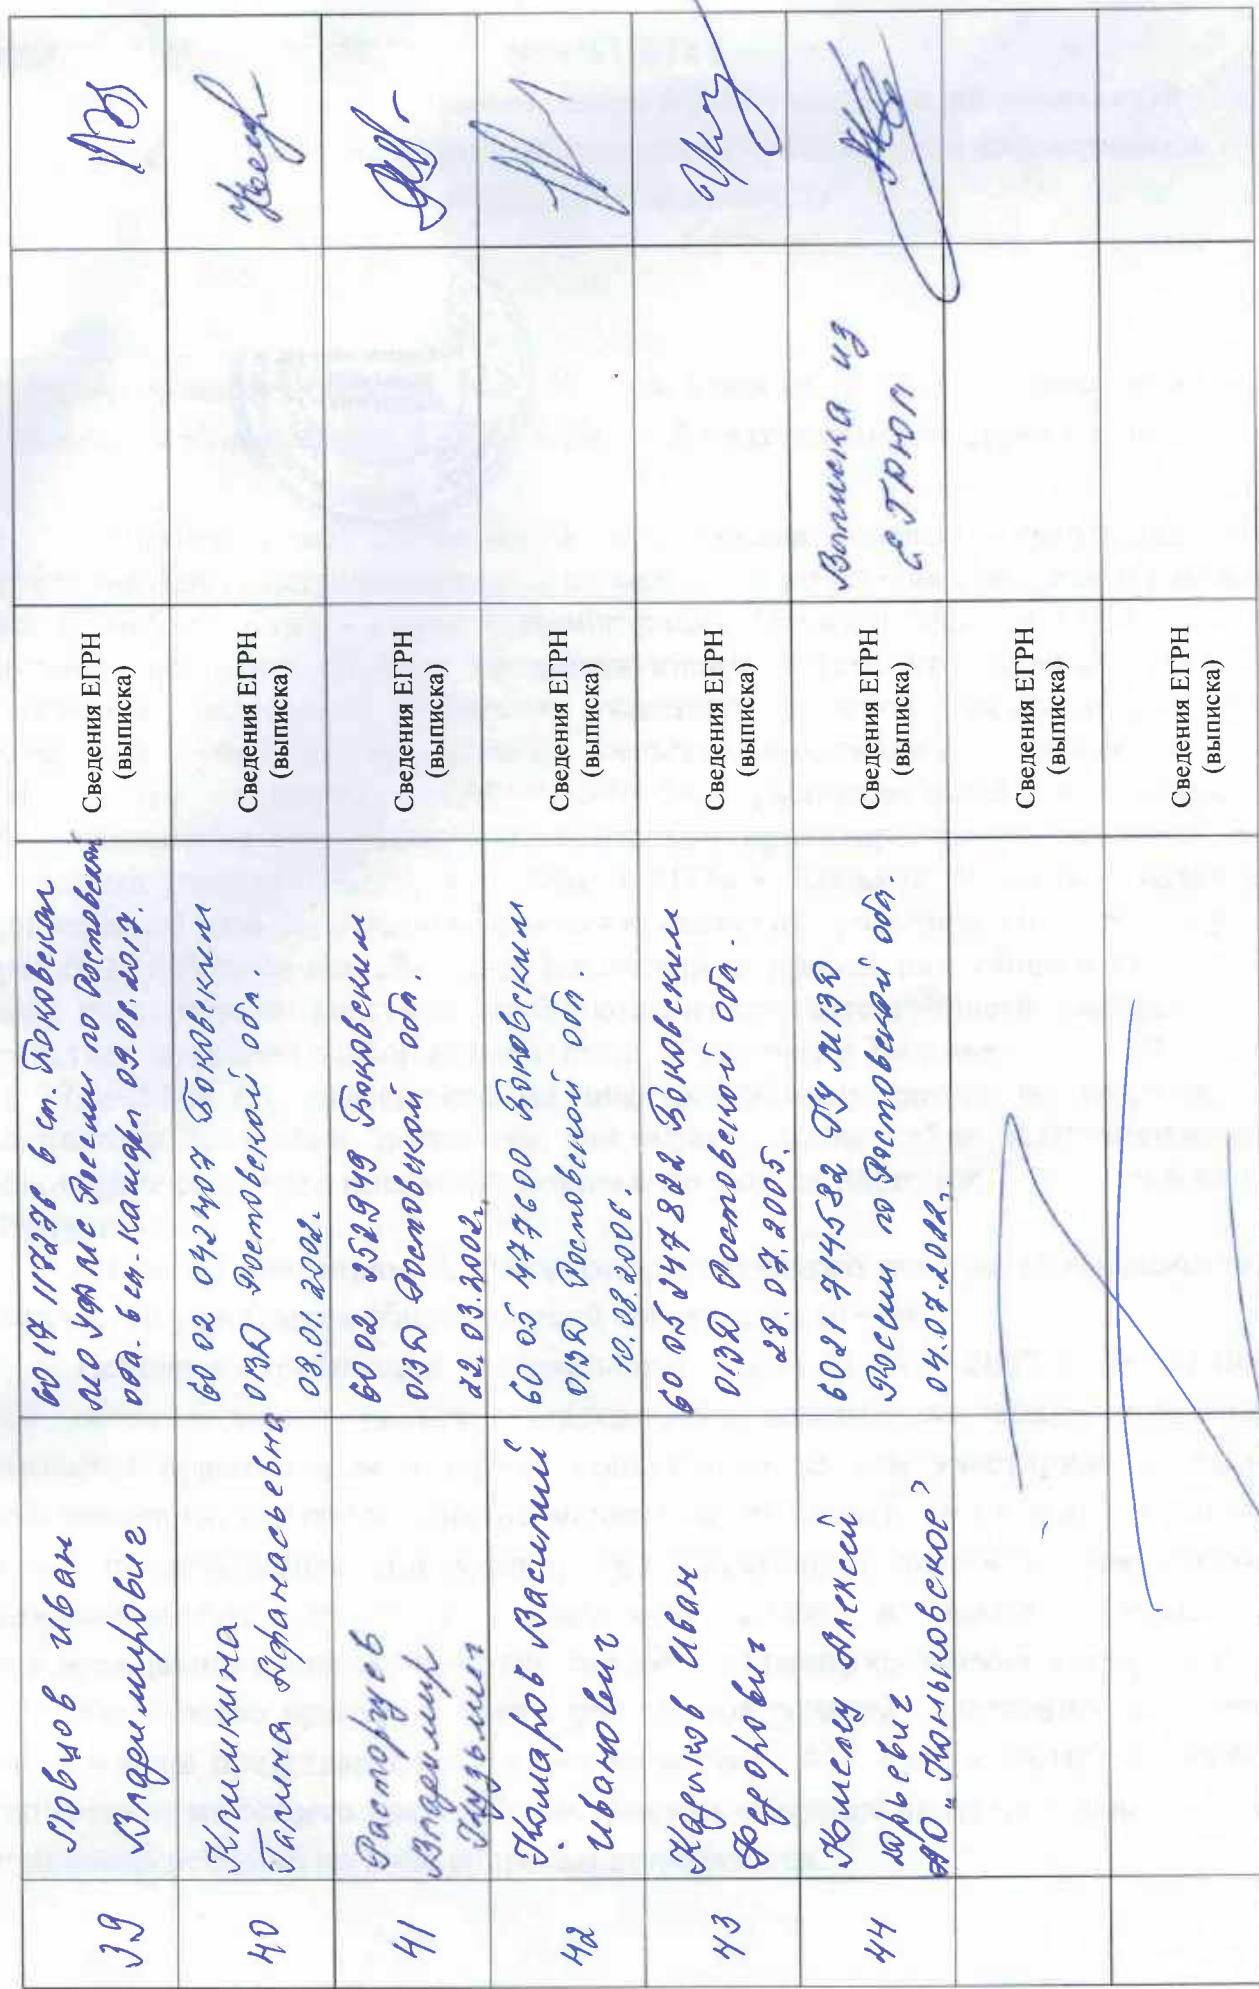 39
Ловцов Иван
Владимирович
60 17 117276 в ст. Боковская
МО УФМС России по Ростовской
обл. в ст. Кашары 09.02.2017.
Сведения ЕГРН
(выписка)
40
Климкина
Галина Афанасьевна
60 02 042407 Боковским
ОВД Ростовской обл.
08.01.2002.
Сведения ЕГРН
(выписка)
41
Расторгуев
Владимир
Кузьмич
60 02 525299 Боковским
ОВД Ростовской обл.
22.03.2002.
Сведения ЕГРН
(выписка)
42
Комаров Василий
Иванович
60 05 477600 Боковским
ОВД Ростовской обл.
10.02.2006.
Сведения ЕГРН
(выписка)
43
Кадыков Иван
Федорович
60 05 247822 Боковским
ОВД Ростовской обл.
28.07.2005.
Сведения ЕГРН
(выписка)
44
Алексей
Юрьевич
АО "Колыновское"
6021 744582 ГУ МВД
России по Ростовской обл.
04.07.2022.
Сведения ЕГРН
(выписка)
Выписка из
ЕГРЮЛ
Сведения ЕГРН
(выписка)
Сведения ЕГРН
(выписка)